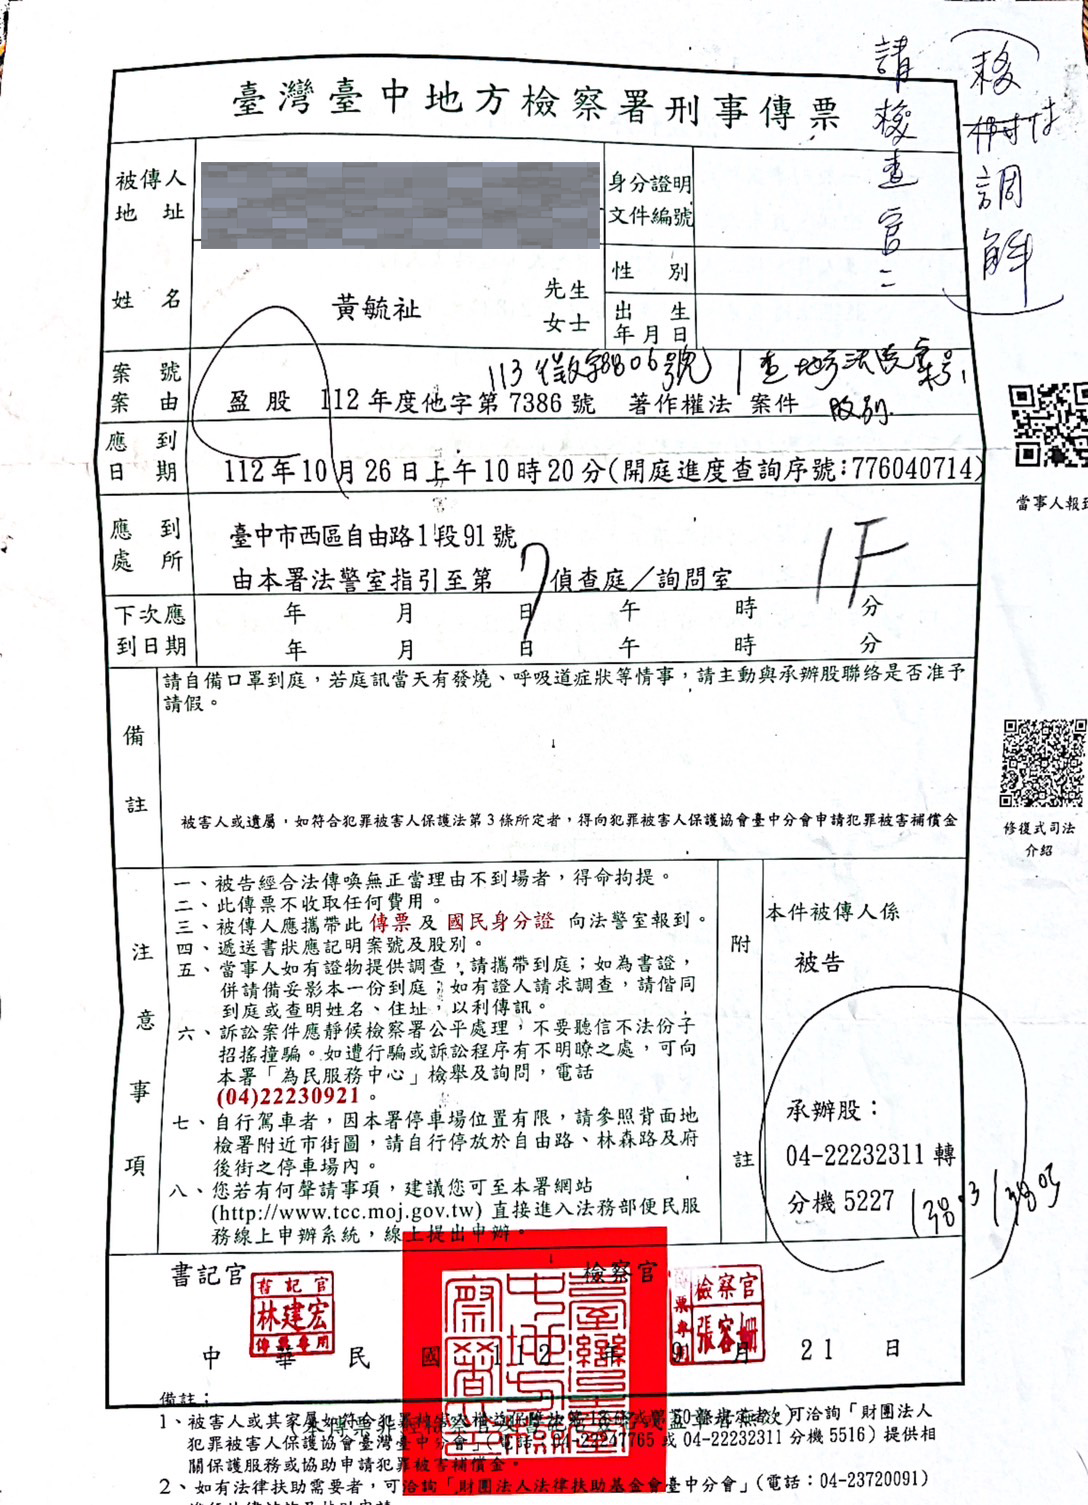 臺灣臺中地方檢察署刑事傳票
請檢查官二
移付調解
被傳人
地址
身分證明
文件編號
性別
出生
年月日
姓名
黃毓祉
先生
女士
案號
案由
113偵字8806號
查地方法院案號
股別
盈股 112年度他字第7386號 著作權法 案件
應到
日期
112年10月26日上午10時20分(開庭進度查詢序號:776040714)
當事人報到
應到
處所
臺中市西區自由路1段91號
由本署法警室指引至第7偵查庭/詢問室
1F
下次應
到日期
年 月 日 午 時 分
年 月 日 午 時 分
備註
請自備口罩到庭,若庭訊當天有發燒、呼吸道症狀等情事,請主動與承辦股聯絡是否准予
請假。
被害人或遺屬,如符合犯罪被害人保護法第3條所定者,得向犯罪被害人保護協會臺中分會申請犯罪被害補償金
修復式司法
介紹
注意事項
一、被告經合法傳喚無正當理由不到場者,得命拘提。
二、此傳票不收取任何費用。
三、被傳人應攜帶此 傳票 及 國民身分證 向法警室報到。
四、遞送書狀應記明案號及股別。
五、當事人如有證物提供調查,請攜帶到庭;如為書證,
併請備妥影本一份到庭;如有證人請求調查,請偕同
到庭或查明姓名、住址,以利傳訊。
六、訴訟案件應靜候檢察署公平處理,不要聽信不法份子
招搖撞騙。如遭行騙或訴訟程序有不明瞭之處,可向
本署「為民服務中心」檢舉及詢問,電話
(04)22230921。
七、自行駕車者,因本署停車場位置有限,請參照背面地
檢署附近市街圖,請自行停放於自由路、林森路及府
後街之停車場內。
八、您若有何聲請事項,建議您可至本署網站
(http://www.tcc.moj.gov.tw)直接進入法務部便民服
務線上申辦系統,線上提出申辦。
附註
本件被傳人係
被告
承辦股:
04-22232311轉
分機5227
書記官
書記官
林建宏
傳票專用
檢察官
檢察官
張容姍
傳票專用
中華民國112年9月21日
備註:
1、被害人或其家屬如符合犯罪被害人權益保障法第
可洽詢「財團法人
犯罪被害人保護協會臺灣臺中分會」(電話:04-22247765 或 04-22232311 分機5516)提供相
關保護服務或協助申請犯罪被害補償金。
2、如有法律扶助需要者,可洽詢「財團法人法律扶助基金會臺中分會」(電話:04-23720091)